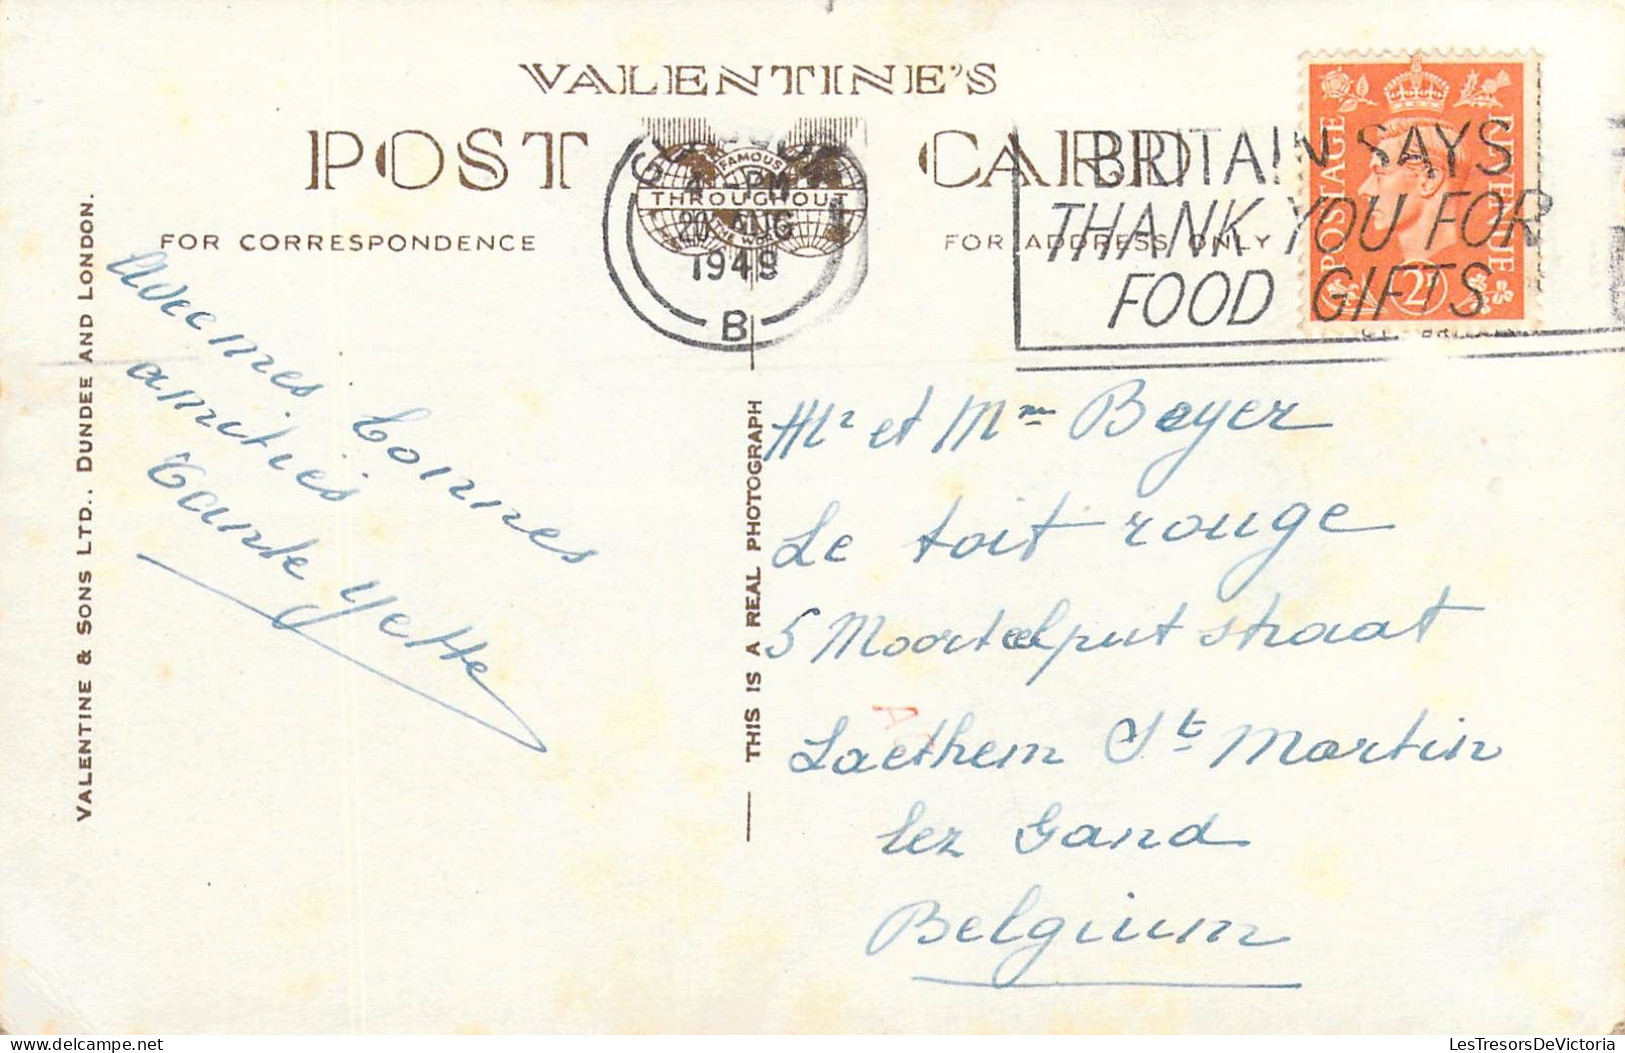 VALENTINE'S
POST CARD
FAMOUS
THROUGHOUT
THE WORLD
FOR CORRESPONDENCE
FOR ADDRESS ONLY
4 - PM
20 AUG
1949
B
BRITAIN SAYS
THANK YOU FOR
FOOD GIFTS
POSTAGE
REVENUE
2D
VALENTINE & SONS LTD., DUNDEE AND LONDON.
THIS IS A REAL PHOTOGRAPH
Avec mes bonnes
amitiés
Tante Yette
Mr et Mme Beyer
Le toit rouge
5 Moortelput straat
Laethem St Martin
lez Gand
Belgium
LesTresorsDeVictoria
delcampe.net